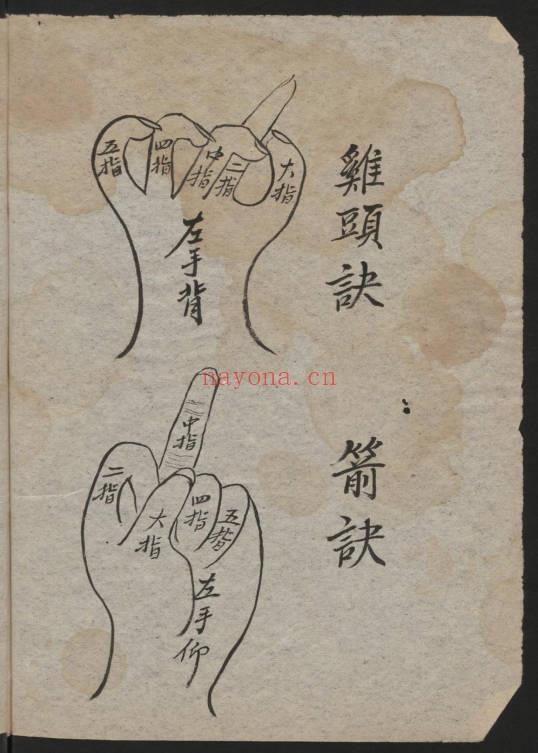 雞頭訣
五指
四指
中指
二指
大指
左手背
箭訣
中指
二指
大指
四指
五指
左手仰
nayona.cn